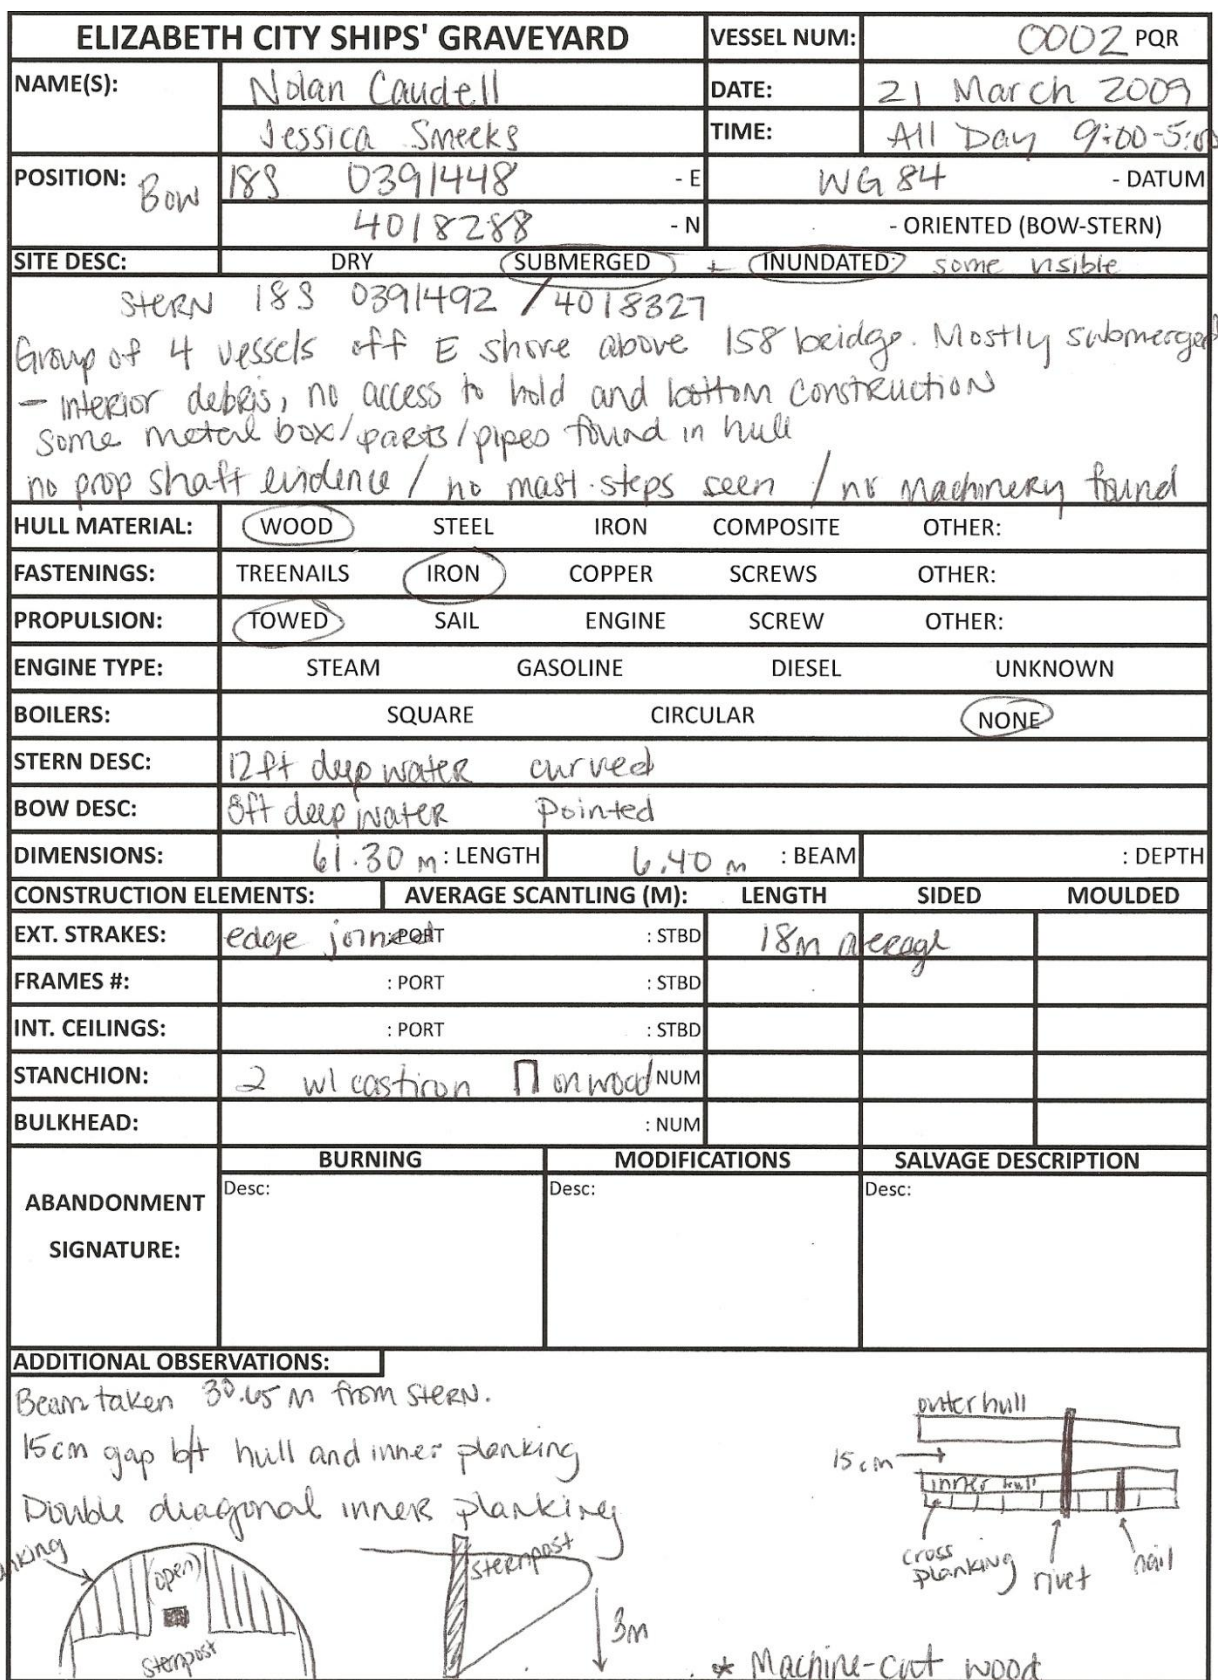 ELIZABETH CITY SHIPS' GRAVEYARD VESSEL NUM: 0002 PQR
NAME(S): Nolan Caudell DATE: 21 March 2009
Jessica Smeeks TIME: All Day 9:00-5:00
POSITION: Bow 18S 0391448 - E WG 84 - DATUM
4018288 - N - ORIENTED (BOW-STERN)
SITE DESC: DRY SUBMERGED + INUNDATED some visible
STERN 18S 0391492 / 4018327
Group of 4 vessels off E shore above 158 beidge. Mostly submerged
- interior debris, no access to hold and bottom construction
some metal box/parts/pipes found in hull
no prop shaft evidence / no mast steps seen / no machinery found
HULL MATERIAL: WOOD STEEL IRON COMPOSITE OTHER:
FASTENINGS: TREENAILS IRON COPPER SCREWS OTHER:
PROPULSION: TOWED SAIL ENGINE SCREW OTHER:
ENGINE TYPE: STEAM GASOLINE DIESEL UNKNOWN
BOILERS: SQUARE CIRCULAR NONE
STERN DESC: 12ft deep water curved
BOW DESC: 8ft deep water Pointed
DIMENSIONS: 61.30 m : LENGTH 6.40 m : BEAM : DEPTH
CONSTRUCTION ELEMENTS: AVERAGE SCANTLING (M): LENGTH SIDED MOULDED
EXT. STRAKES: edge joined : PORT : STBD 18m average
FRAMES #: : PORT : STBD
INT. CEILINGS: : PORT : STBD
STANCHION: 2 w/ cast iron Π on wood NUM
BULKHEAD: : NUM
ABANDONMENT SIGNATURE: BURNING MODIFICATIONS SALVAGE DESCRIPTION
Desc: Desc: Desc:
ADDITIONAL OBSERVATIONS:
Beam taken 30.65 m from stern.
15cm gap b/t hull and inner planking
Double diagonal inner planking
outer hull
15cm
inner hull
cross planking
rivet
nail
(open)
sternpost
sternpost
3m
* Machine-cut wood